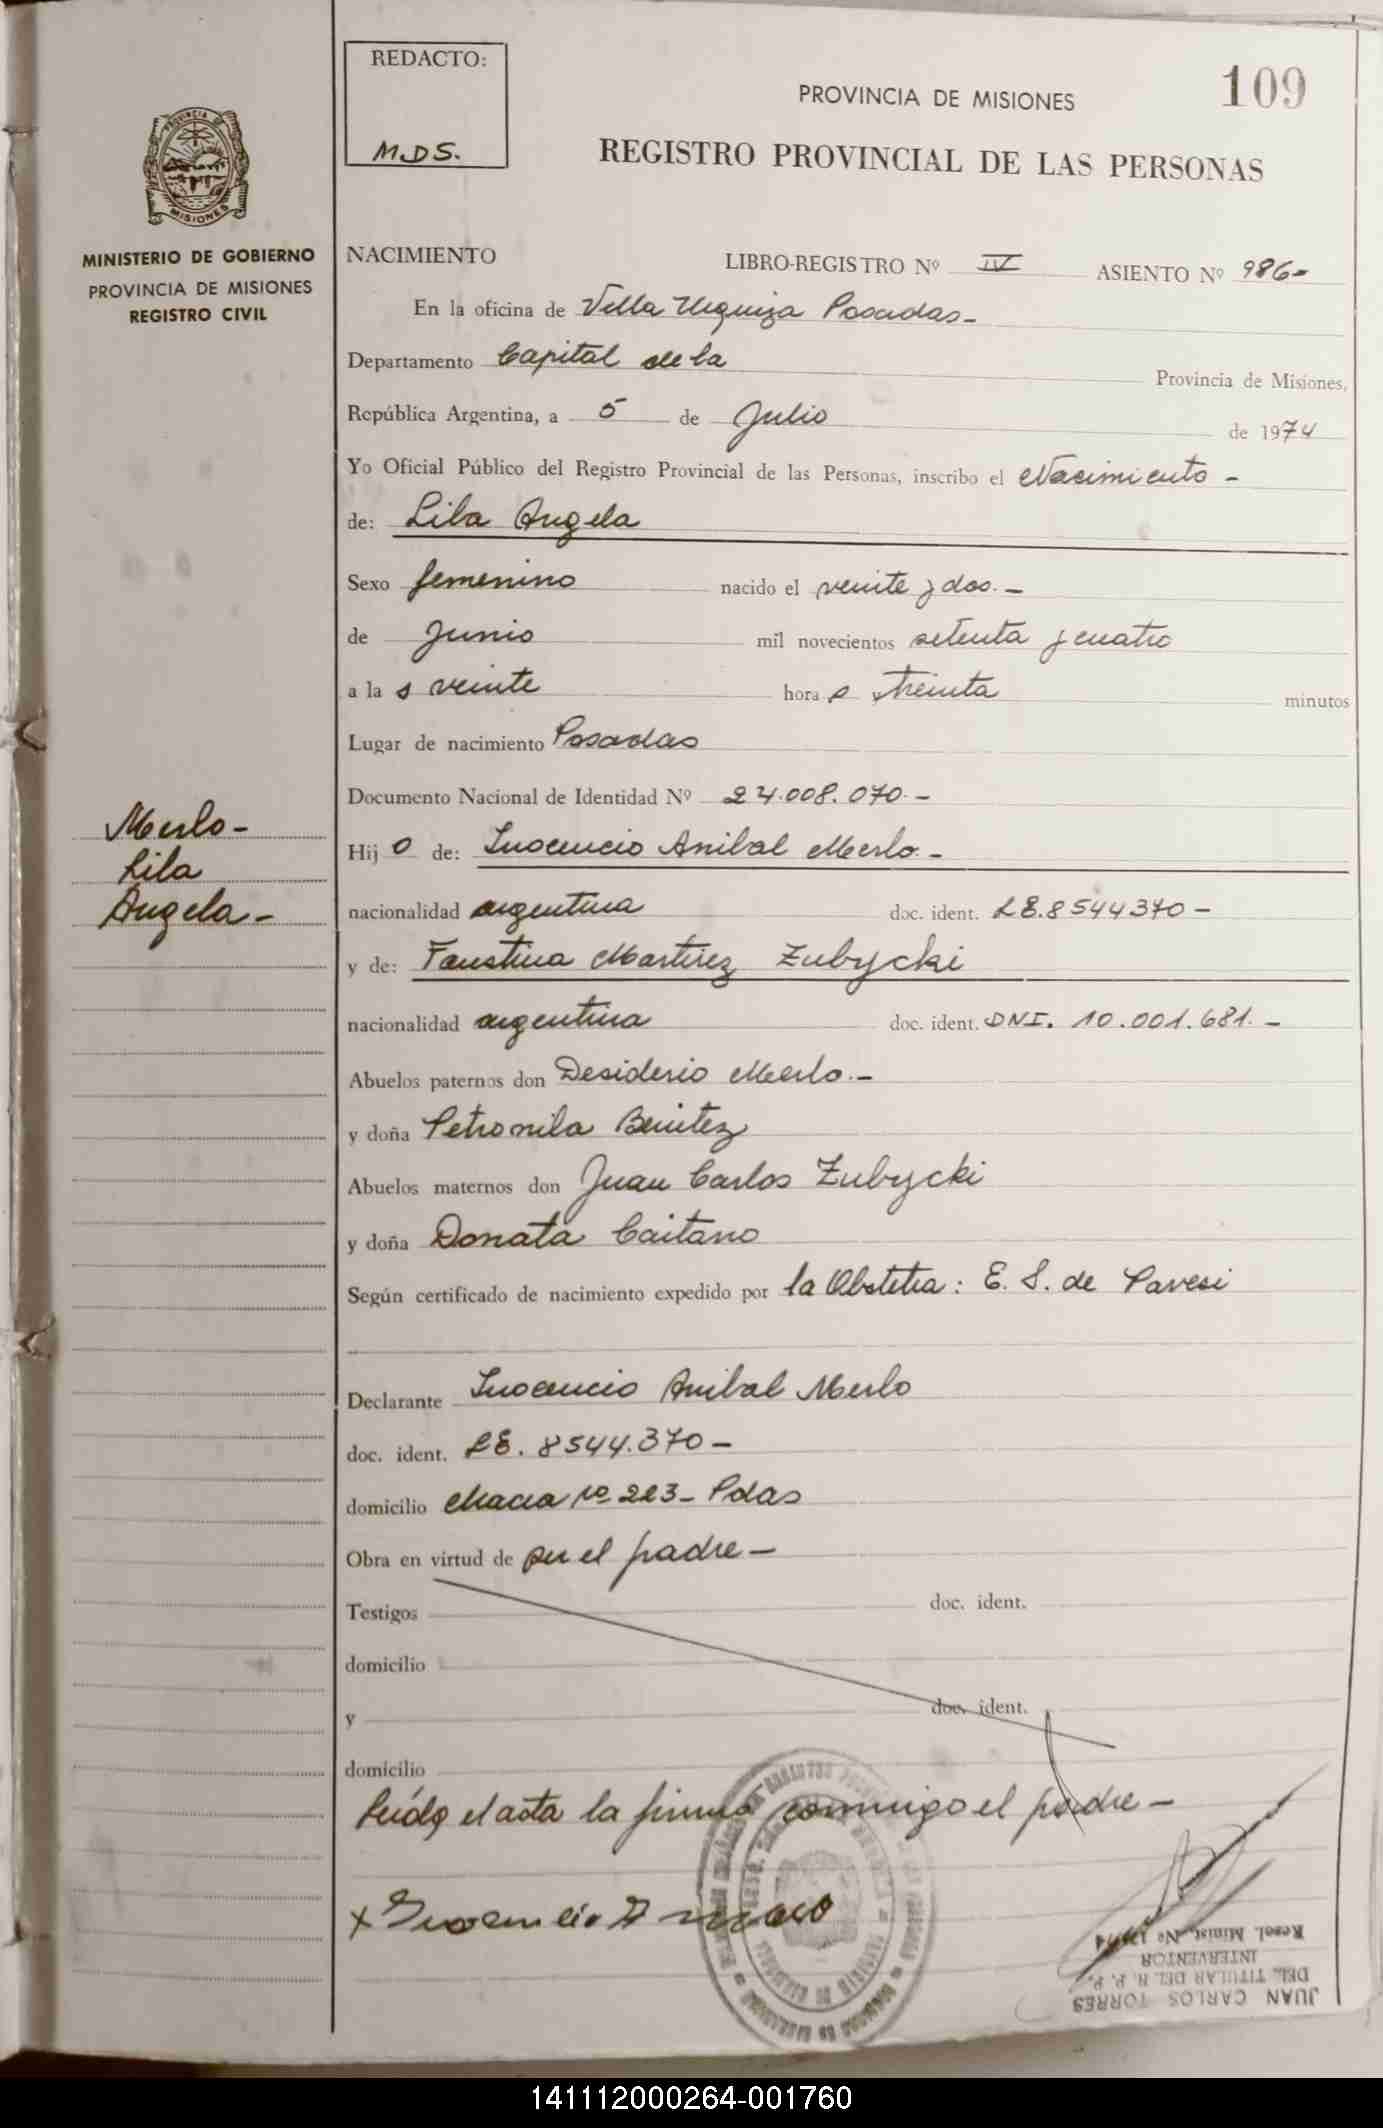 REDACTO:
M.D.S.
PROVINCIA DE MISIONES
109
REGISTRO PROVINCIAL DE LAS PERSONAS
MISIONES
MINISTERIO DE GOBIERNO
PROVINCIA DE MISIONES
REGISTRO CIVIL
NACIMIENTO LIBRO-REGISTRO Nº IV ASIENTO Nº 986-
En la oficina de Villa Urquiza Posadas-
Departamento Capital de la Provincia de Misiones,
República Argentina, a 5 de Julio de 1974
Yo Oficial Público del Registro Provincial de las Personas, inscribo el Nacimiento -
de: Lila Angela
Sexo femenino nacido el veinte y dos.-
de Junio mil novecientos setenta y cuatro
a la s veinte hora s treinta minutos
Lugar de nacimiento Posadas
Documento Nacional de Identidad Nº 24.008.070.-
Merlo-
Lila
Angela-
Hij o de: Inocencio Anibal Merlo.-
nacionalidad argentina doc. ident. LE.8544370-
y de: Faustina Martirez Zubycki
nacionalidad argentina doc. ident. DNI. 10.001.681.-
Abuelos paternos don Desiderio Merlo.-
y doña Petronila Benitez
Abuelos maternos don Juan Carlos Zubycki
y doña Donata Caitano
Según certificado de nacimiento expedido por la Obstetra: E. S. de Pavesi
Declarante Inocencio Anibal Merlo
doc. ident. LE. 8544.370-
domicilio Chacra nº 223- Pdas
Obra en virtud de ser el padre-
Testigos doc. ident.
domicilio
y doc. ident.
domicilio
Leída el acta la firma conmigo el padre-
x Inocencio A
Resol. Minist. Nº
INTERVENTOR
DEL. TITULAR DEL R. P. P.
JUAN CARLOS TORRES
141112000264-001760